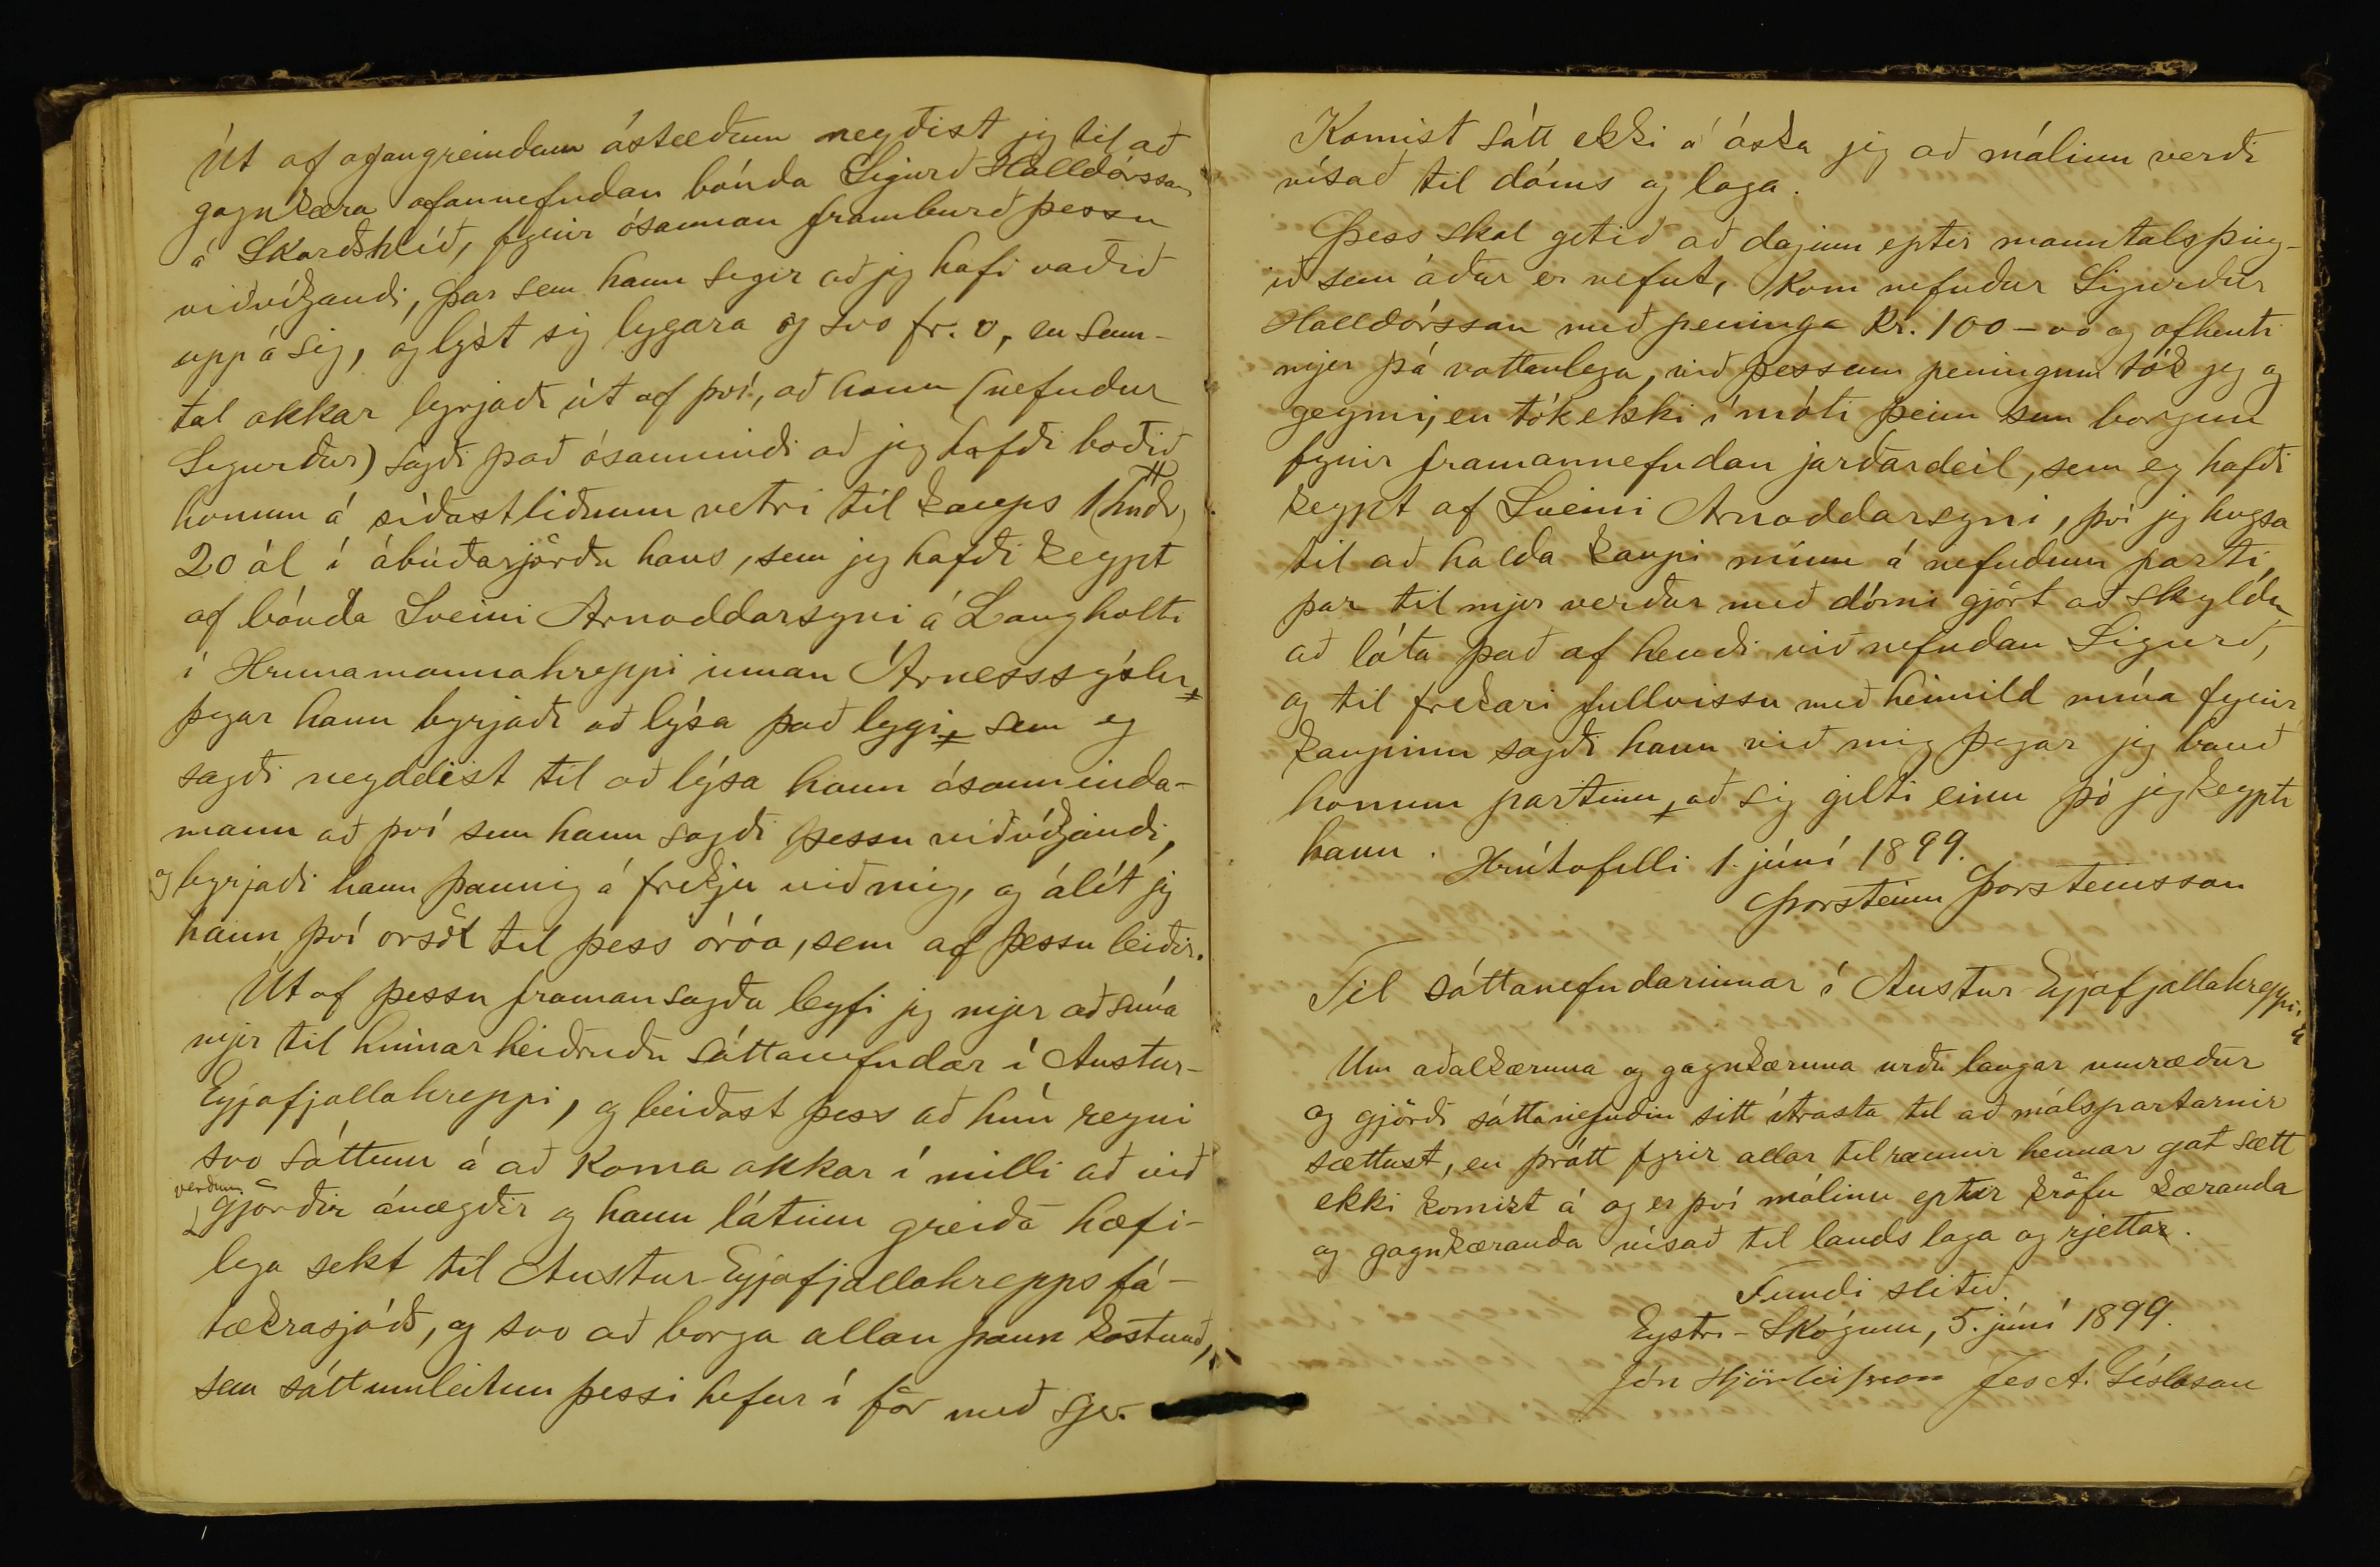 Út af ofangreindum ástæðum neyðist jeg til að
gagnkæra ofannefndan bónda Sigurð Halldórsson
á Skarðshlíð, fyrir ósannan framburð þessu
viðvíkjandi, þar sem hann segir að jeg hafi vaðið
upp á sig, og lýst sig lygara og svo fr. v, en sam-
tal okkar byrjaði út af því, að hann (nefndur
Sigurður) sagði það ósannindi að jeg hafði boðið
honum á síðastliðnum vetri til kaups 1 hndr,
20 ál í ábúðarjörðu hans, sem jeg hafði keypt
af bónda Sveini Arnoddarsyni á Langholti
í Hrunamannahreppi innan Árnessýslu
þegar hann byrjaði að lýsa það lygi, sem eg
sagði neyddist til að lýsa hann ósanninda-
mann að því sem hann sagði þessu viðvíkjandi,
og byrjaði hann þannig á frekju við mig, og álít jeg
hann því orsök til þess óróa, sem af þessu leiðir.
Út af þessu framansagða leyfi jeg mjer að snúa
mjer til hinnar heiðruðu sáttanefndar í Austur-
Eyjafjallahreppi, og beiðast þess að hún reyni
svo sáttum á að koma okkar í milli að við
verðum gjörðir ánægðir og hann látinn greiða hæfi-
lega sekt til Austur-Eyjafjallahrepps fá-
tækrasjóðs, og svo að borga allan þann kostnað,
sem sáttumleitun þessi hefur í för með sjer.
Komist sátt ekki á óska jeg að málinu verði
vísað til dóms og laga.
Þess skal getið að daginn eptir manntalsþing-
ið sem áður er nefnt, kom nefndur Sigurður
Halldórsson með peninga kr. 100 - 00 og afhenti
mjer þá vottanlega, við þessum peningum tók jeg og
geymi, en tók ekki í móti þeim sem borgun
fyrir framannefndan jarðardeil, sem eg hafði
keypt af Sveini Arnoddarsyni, því jeg hugsa
til að halda kaupi mínu á nefndum parti,
þar til mjer verður með dómi gjört að skyldu
að láta það af hendi við nefndan Sigurð,
og til frekari fullvissu með heimild mína fyrir
kaupinu sagði hann við mig þegar jeg bauð
honum partinn, að sig gilti einu þó jeg keypti
hann. Hrútafelli 1. júní 1899.
Þorsteinn Þorsteinsson
Til sáttanefndarinnar í Austur Eyjafjallahreppi.
Um aðalkæruna og gagnkæruna urðu langar umræður
og gjörði sáttanefndin sitt ítrasta til að málspartarnir
sættust, en þrátt fyrir allar tilraunir hennar gat sætt
ekki komist á og er því málinu eptir kröfu kæranda
og gagnkæranda vísað til lands laga og rjettar.
Fundi slitið.
Eystri-Skógum, 5. júní 1899.
Jón Hjörleifsson Jes A. Gíslason